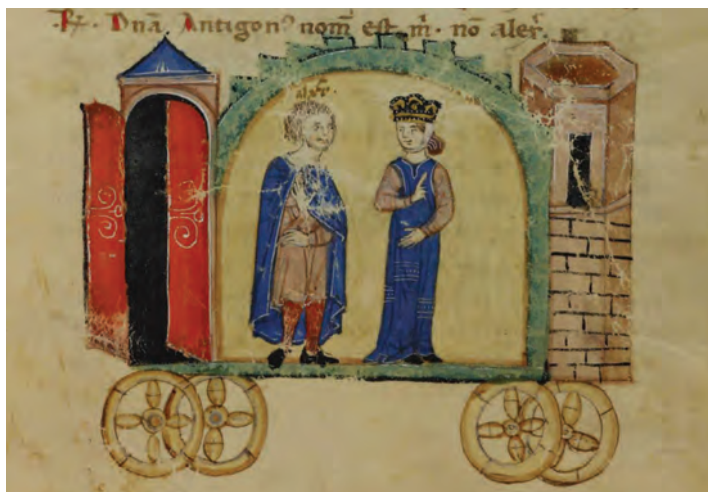 Rx. Dnã. Antigonꝰ nom̃ est m̃. nõ aler̃.
alex̃.